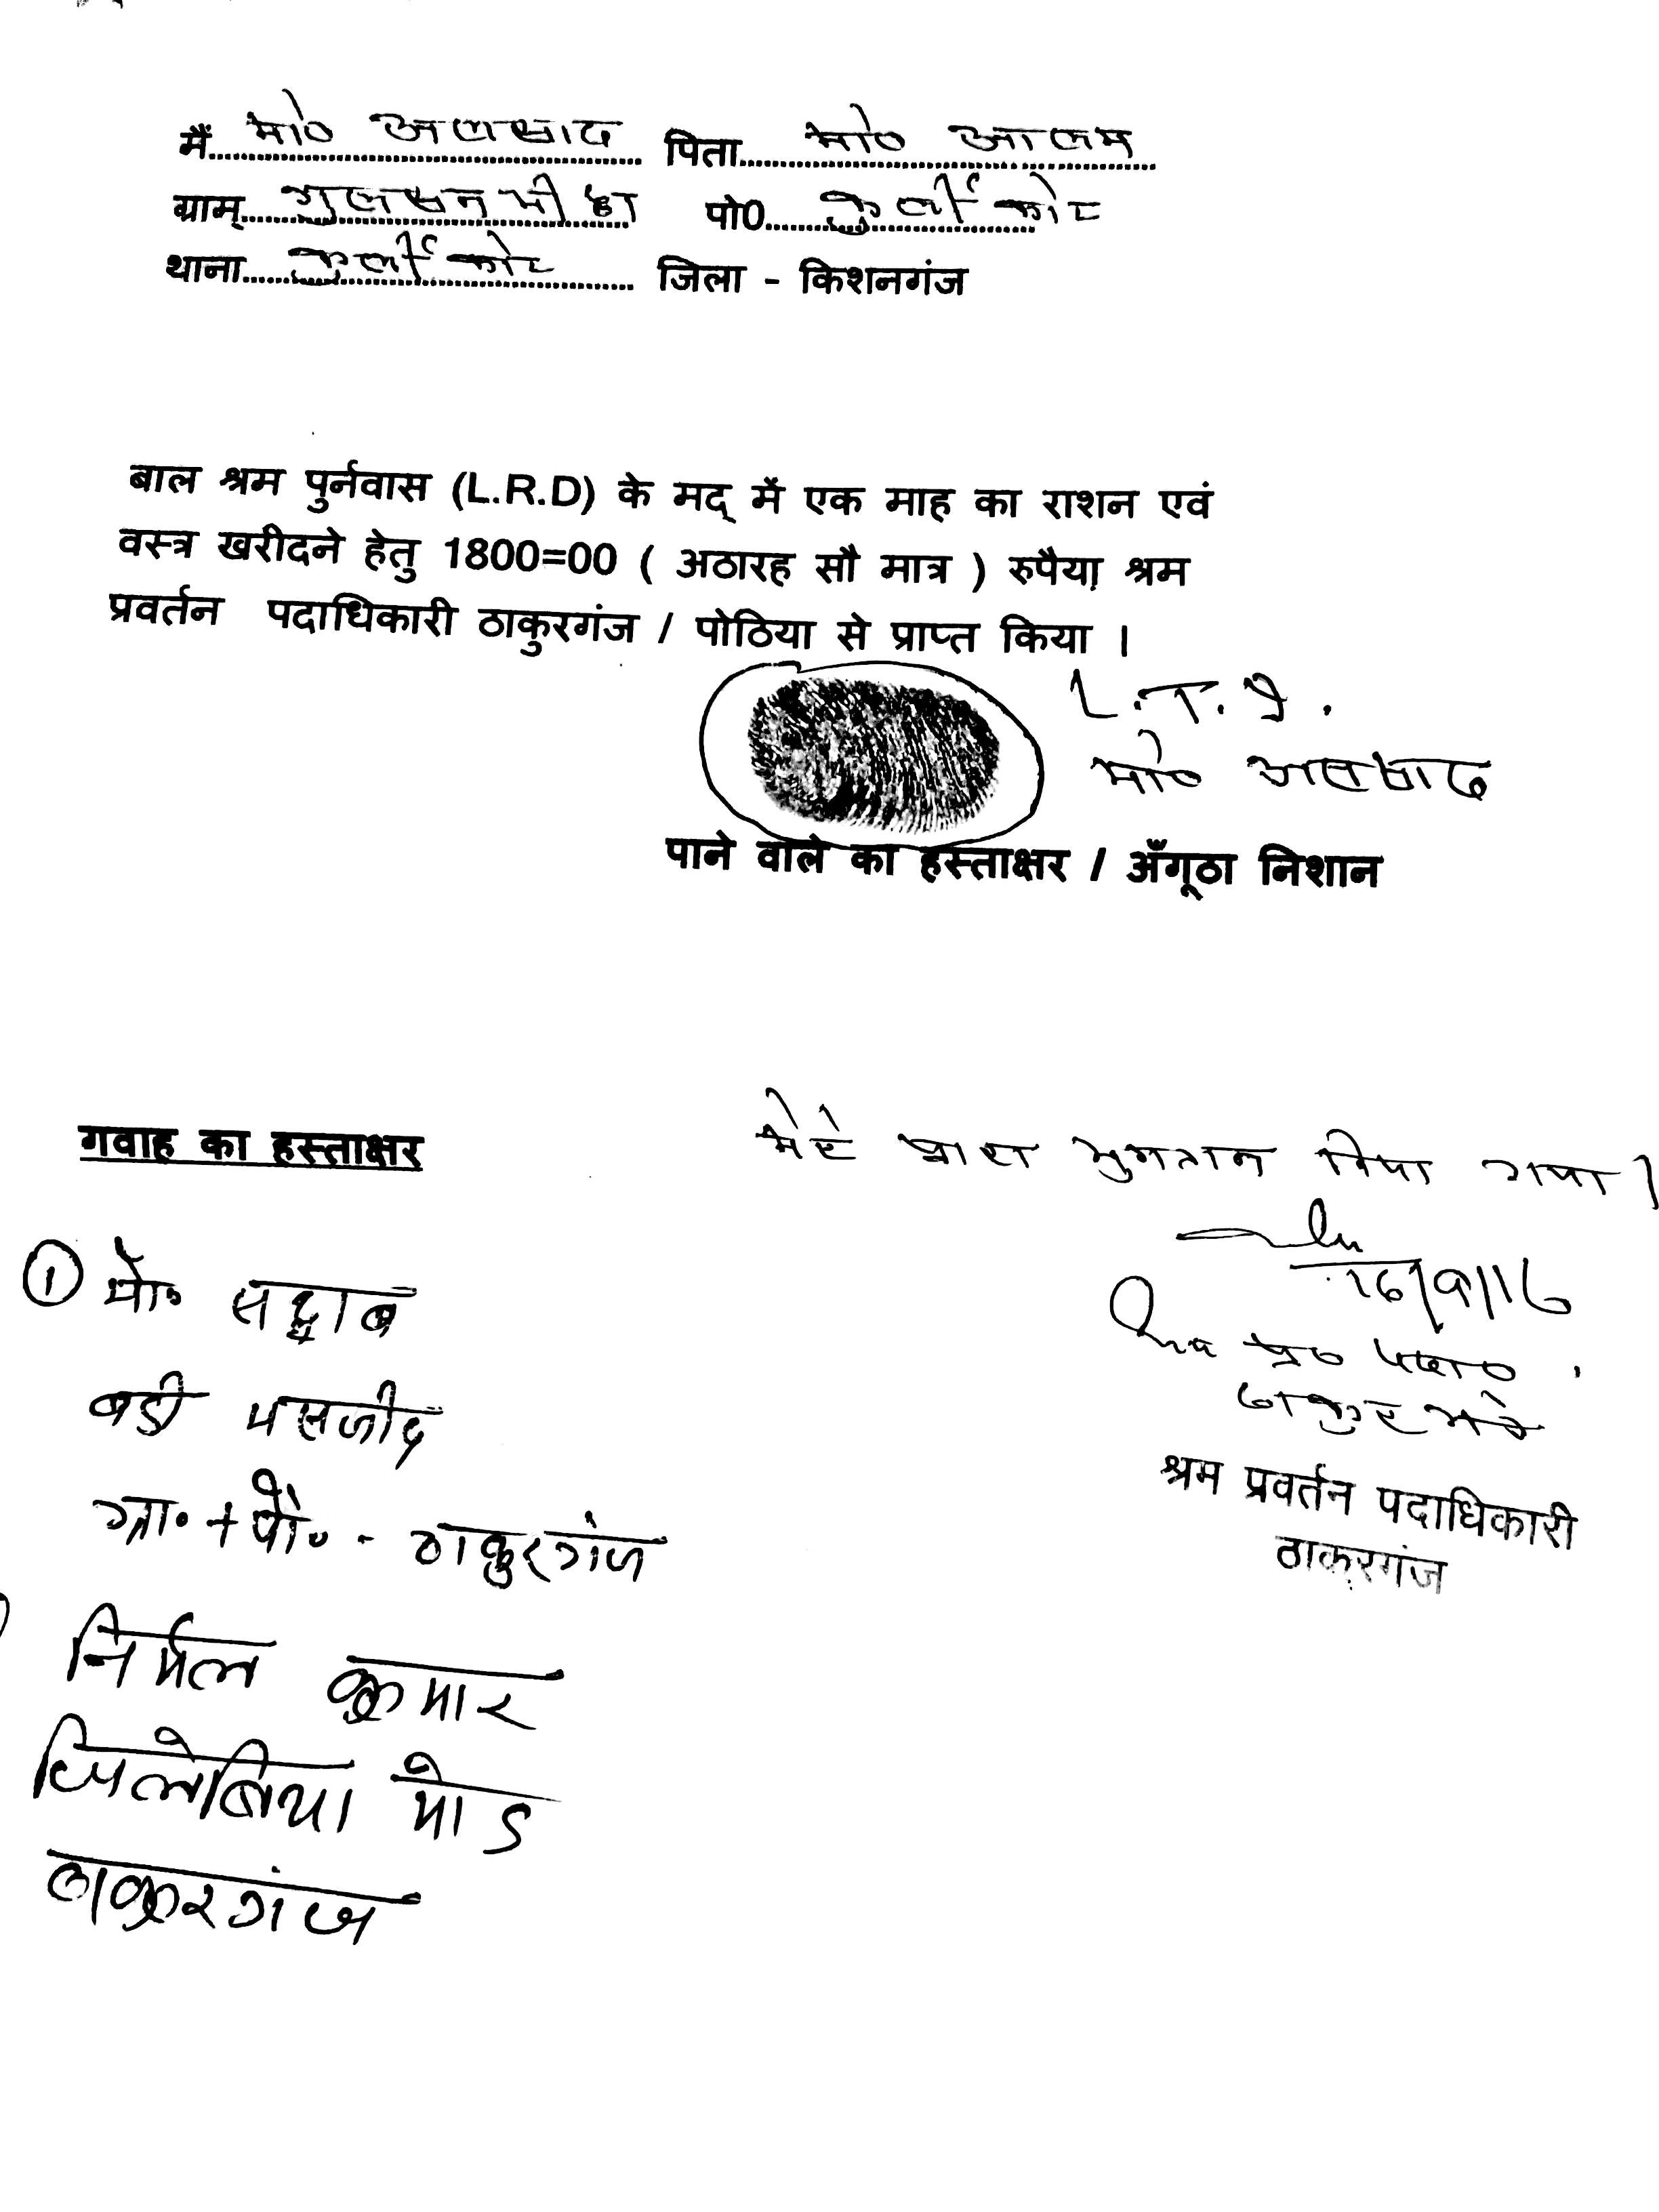 मैं मो० अलसाद पिता मो० आलम
ग्राम् गुलसन भीट्टा पो0 कुर्लीकोट
थाना कुर्लीकोट जिला - किशनगंज
बाल श्रम पुर्नवास (L.R.D) के मद् में एक माह का राशन एवं
वस्त्र खरीदने हेतु 1800=00 ( अठारह सौ मात्र ) रुपैया श्रम
प्रवर्तन पदाधिकारी ठाकुरगंज / पोठिया से प्राप्त किया ।
L.T.I.
मो० अलसाद
पाने वाले का हस्ताक्षर / अँगूठा निशान
गवाह का हस्ताक्षर
मेरे द्वारा भुगतान किया गया।
① मो० सद्दाब
बडी मसजीद
ग्रा० + पो० - ठाकुरगंज
निर्मल कुमार
जिलेबिया मोड
ठाकुरगंज
16/9/16
श्रम प्र० पदा०
ठाकुरगंज
श्रम प्रवर्तन पदाधिकारी
ठाकुरगंज